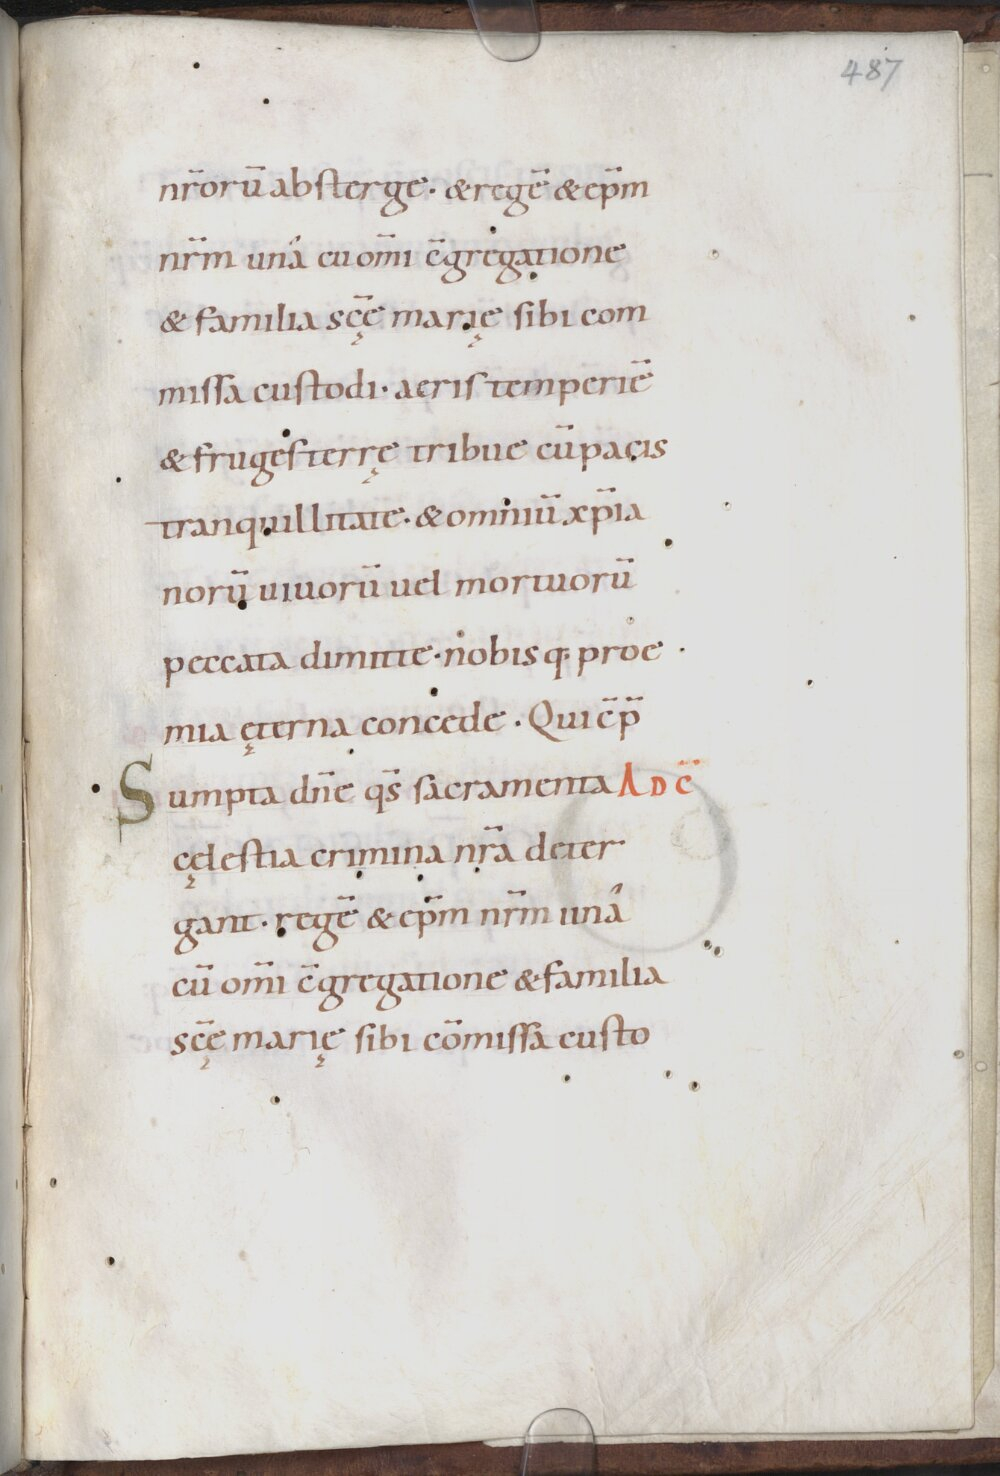 487
nr̄orū absterge · & regē & ep̄m
nr̄m una cu om̄i c̄gregatione
& familia sc̄ę marię sibi com
missa custodi · aeris temperiē
& fruges terrę tribue cū pacis
tranquillitate · & omniū xp̄ia
norū uiuorū uel mortuorū
peccata dimitte · nobis q; proe ·
mia ęterna concede · Qui c̄ p̄
Sumpta dn̄e qs̄ sacramenta AD C̄
cęlestia crimina nr̄a deter
gant · regē & ep̄m nr̄m una
cū om̄i c̄gregatione & familia
sc̄ę marię sibi cōmissa custo